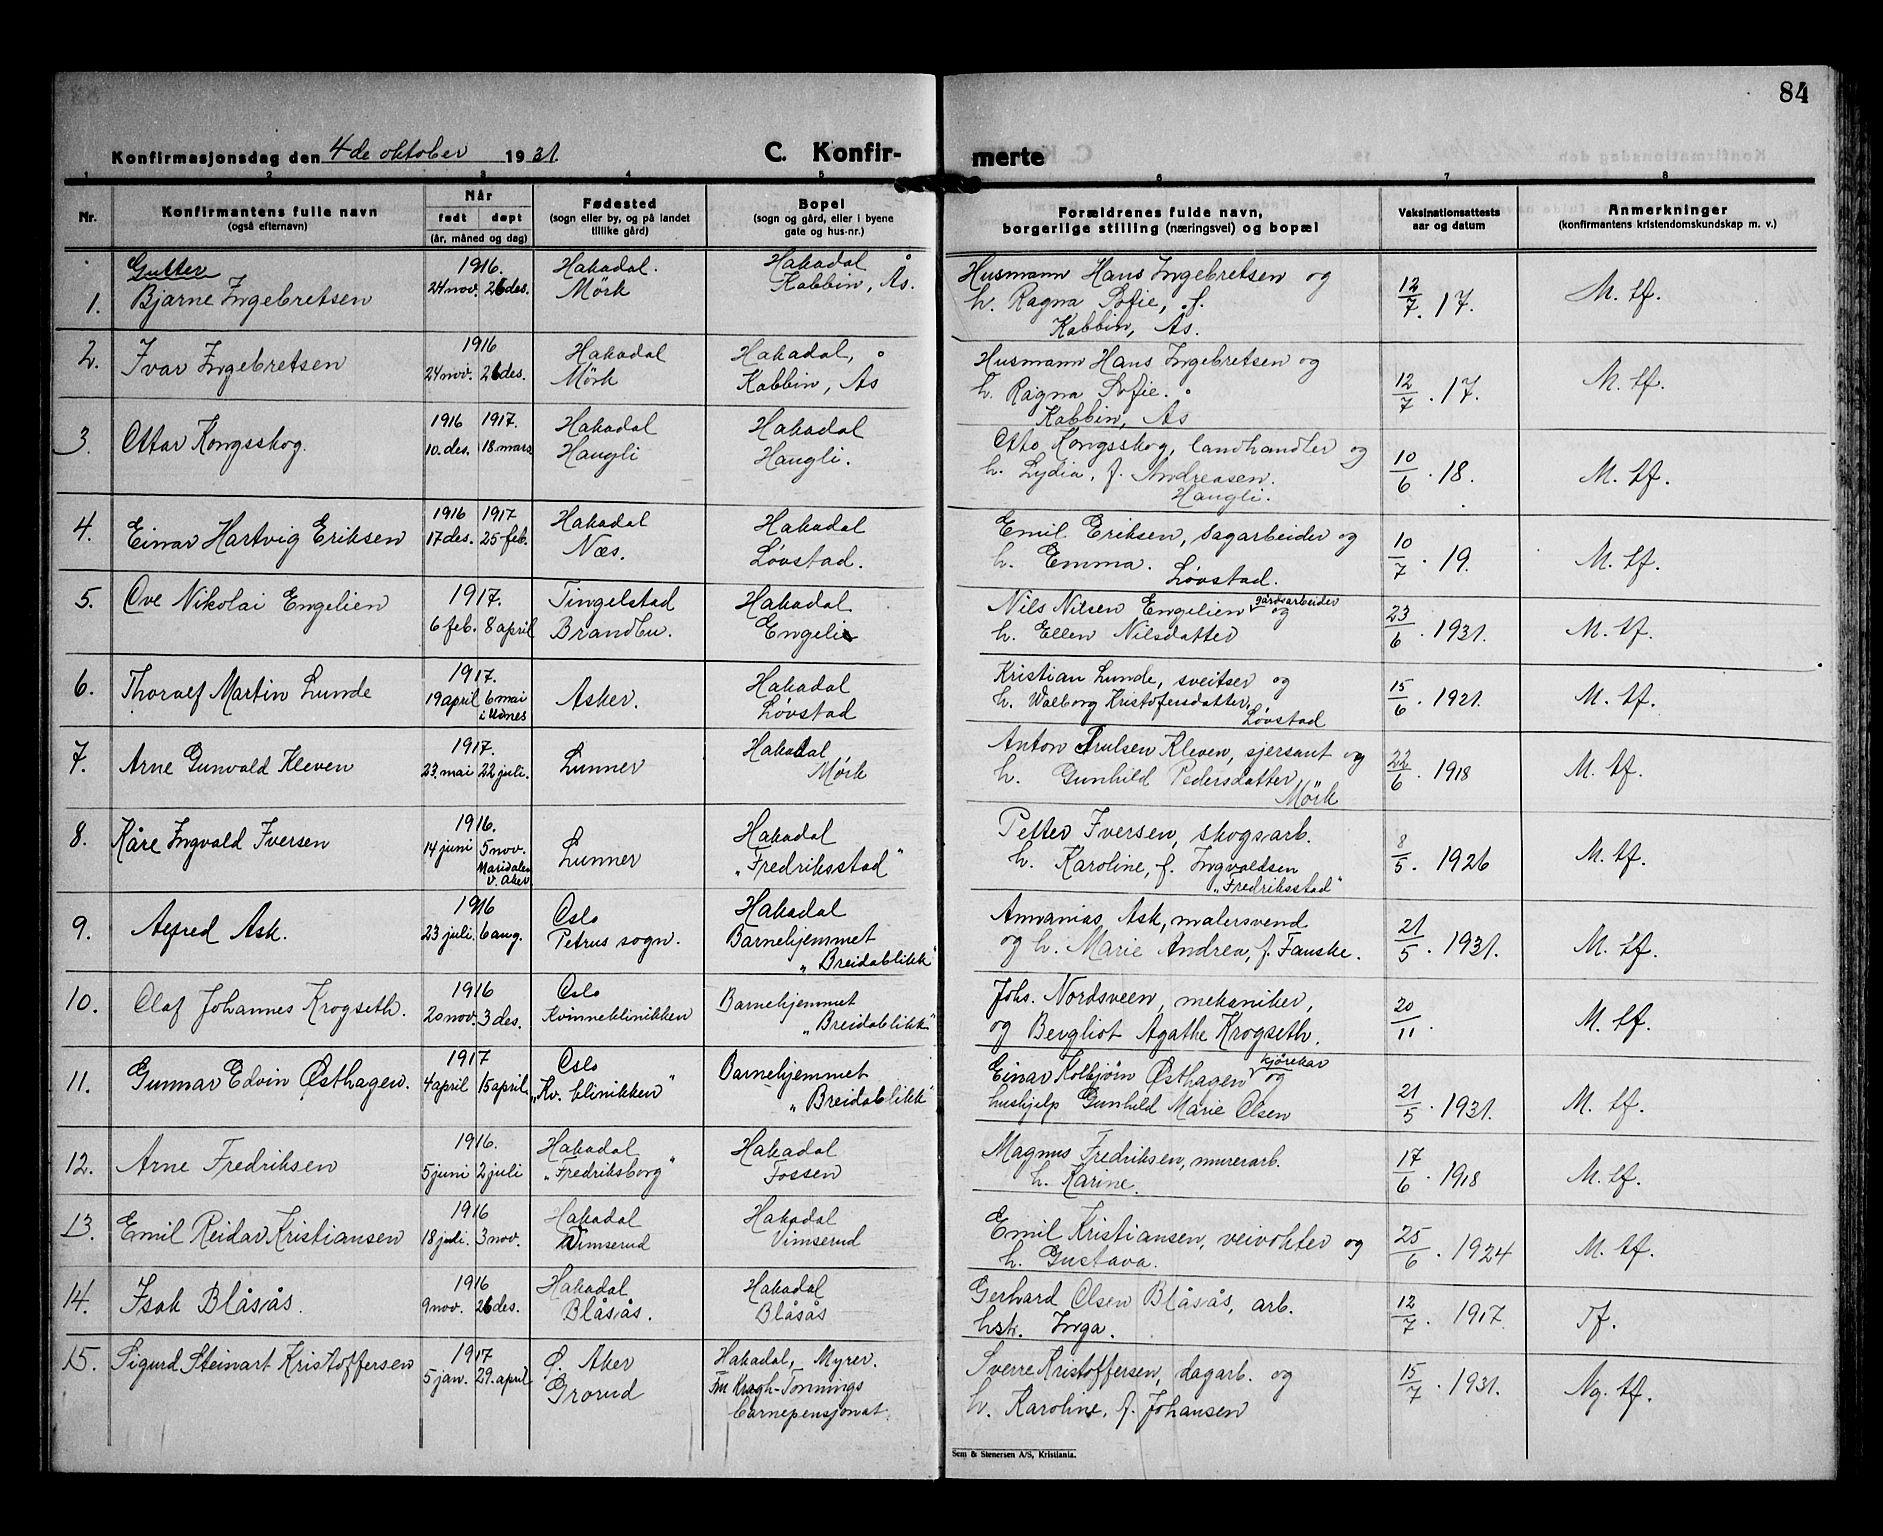 84
Konfirmasjonsdag den 4de oktober 1931.
C. Konfir-
merte
1 2 3 4 5 6 7 8
Nr.
Konfirmantens fulle navn
(også efternavn)
Når
født døpt
(år, måned og dag)
Fødested
(sogn eller by, og på landet
tillike gård)
Bopel
(sogn og gård, eller i byene
gate og hus-nr.)
Forældrenes fulde navn,
borgerlige stilling (næringsvei) og bopæl
Vaksinationsattests
aar og datum
Anmerkninger
(konfirmantens kristendomskundskap m. v.)
Gutter 1916. Hakadal. Hakadal Husmann Hans Ingebretsen og
1. Bjarne Ingebretsen 24 nov. 26 des. Mörk Kabbin, Ås. h. Ragna Sofie, f. 12/7. 17. M. tf.
Kabbin, Ås.
2. Ivar Ingebretsen 1916 Hakadal Hakadal, Husmann Hans Ingebretsen og
24 nov. 26 des. Mörk Kabbin, Ås h. Ragna Sofie. 12/7. 17. M. tf.
Kabbin, Ås
3. Ottar Kongsskog. 1916 1917. Hakadal Hakadal Otto Kongsskog, landhandler og
10. des. 18. mars Haugli Haugli. h. Lydia, f. Andreasen. 10/6. 18. M. tf.
Haugli.
4. Einar Hartvig Eriksen 1916 1917 Hakadal Hakadal Emil Eriksen, sagarbeider og
17 des. 25 feb. Næs. Løvstad. h. Emma. Løvstad. 10/7. 19. M. tf.
5. Ove Nikolai Engelien 1917. Tingelstad Hakadal Nils Nilsen Engelien gårdsarbeider og
6 feb. 8 april Brandbu. Engeli h. Ellen Nilsdatter 23/6. 1931. M. tf.
6. Thoralf Martin Lunde 1917. Asker. Hakadal Kristian Lunde, sveitser og
19 april 6 mai i Udnes Løvstad h. Walborg Kristofersdatter. Løvstad 15/6. 1921. M. tf.
7. Arne Gunvald Kleven 1917. Lunner Hakadal Anton Trulsen Kleven, sjersant og
23. mai 22 juli. Mörk h. Gunhild Pedersdatter 22/6. 1918 M. tf.
Mörk
8. Kåre Ingvald Iversen 1916. Lunner Hakadal Petter Iversen, skogsarb.
14 juni 5 nov. Maridalen v. Aker "Fredriksstad" h. Karoline, f. Ingvaldsen 8/5. 1926 M. tf.
"Fredriksstad"
9. Alfred Ask. 1916 Oslo Hakadal Annanias Ask, malersvend
23 juli. 6 aug. Petrus sogn. Barnehjemmet og h. Marie Andrea, f. Fauske. 21/5. 1931. M. tf.
"Breidablikk"
10. Olaf Johannes Krogseth. 1916 Oslo Barnehjemmet Johs. Nordsveen, mekaniker,
20 nov. 3 des. Kvinneklinikken "Breidablikk" og Bergliot Agathe Krogseth. 20/11. M. tf.
11. Gunnar Edvin Østhagen. 1917 Oslo Barnehjemmet Einar Kolbjörn Østhagen kjørekar og
4 april 15 april "Kv. klinikken" "Breidablikk" hushjelp Gunhild Marie Olsen 21/5. 1931. M. tf.
12. Arne Fredriksen 1916. Hakadal Hakadal Magnus Fredriksen, murerarb.
5 juni 2 juli "Fredriksborg" Fossen h. Karine. 17/6. 1918 M. tf.
13. Emil Reidar Kristiansen 1916 Hakadal Hakadal Emil Kristiansen, veivokter og
18 juli. 3 nov. Vimserud Vimserud h. Gustava. 25/6. 1924 M. tf.
14. Isak Blåsås. 1916 Hakadal Hakadal Gerhard Olsen Blåsås, arb.
9 nov. 26 des. Blåsås. Blåsås hstr. Inga. 12/7. 1917. Tf.
15. Sigurd Steinart Kristoffersen 1917 Ø. Aker Hakadal, Myrer. Sverre Kristoffersen, dagarb. og
5 jan. 29. april Grorud Fru Kragh-Tonnings h. Karoline, f. Johansen 15/7. 1931. Ng. tf.
barnepensjonat.
Sem & Stenersen A/S, Kristiania.